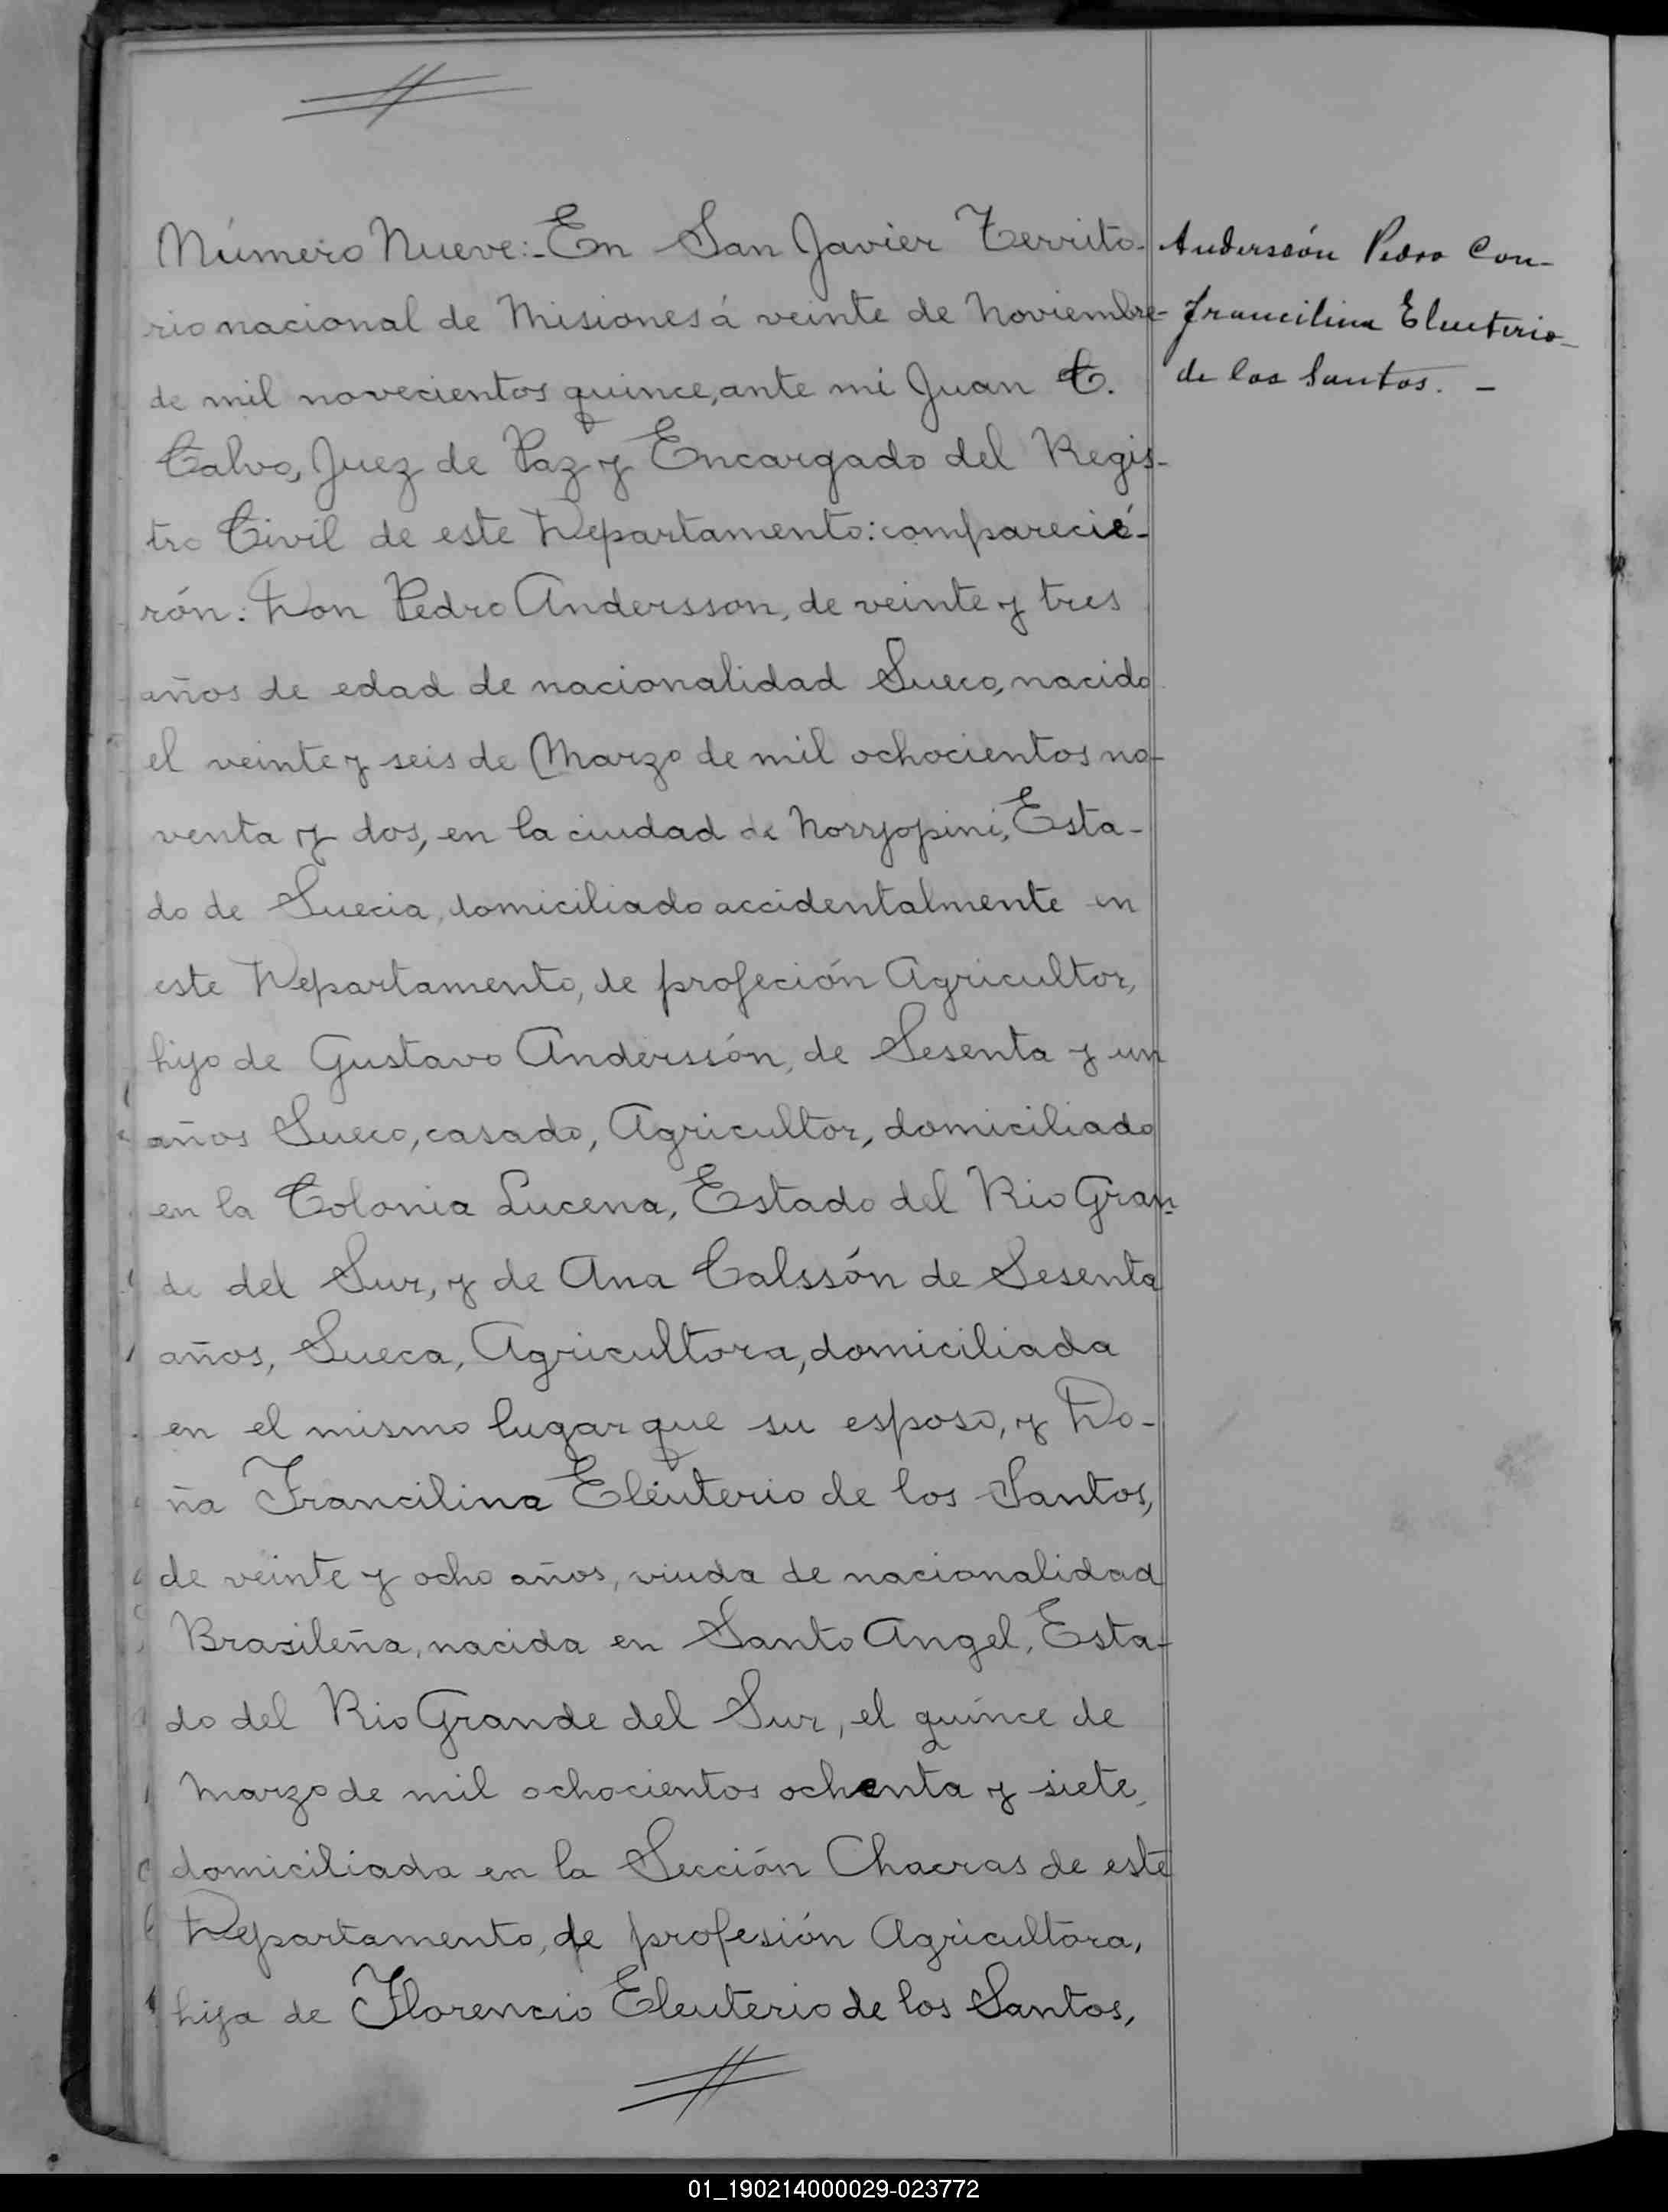 Número Nueve:- En San Javier Territo-
rio nacional de Misiones á veinte de Noviembre
de mil novecientos quince, ante mi Juan C.
Calvo, Juez de Paz y Encargado del Regis-
tro Civil de este Departamento: comparecié-
rón: Don Pedro Andersson, de veinte y tres
años de edad de nacionalidad Sueco, nacido
el veinte y seis de Marzo de mil ochocientos no-
venta y dos, en la ciudad de Norrjopini, Esta-
do de Suecia, domiciliado accidentalmente en
este Departamento, de profeción Agricultor,
hijo de Gustavo Anderssón, de Sesenta y un
años Sueco, casado, Agricultor, domiciliado
en la Colonia Lucena, Estado del Rio Gran-
de del Sur, y de Ana Calssón de Sesenta
años, Sueca, Agricultora, domiciliada
en el mismo lugar que su esposo, y Do-
ña Francilina Eléuterio de los Santos,
de veinte y ocho años, viuda de nacionalidad
Brasileña, nacida en Santo Angel, Esta-
do del Rio Grande del Sur, el quince de
Marzo de mil ochocientos ochenta y siete,
domiciliada en la Sección Chacras de este
Departamento, de profesión Agricultora,
hija de Florencio Eleuterio de los Santos,
Anderssón Pedro Con-
Francilina Eleuterio
de los Santos. -
01_190214000029-023772